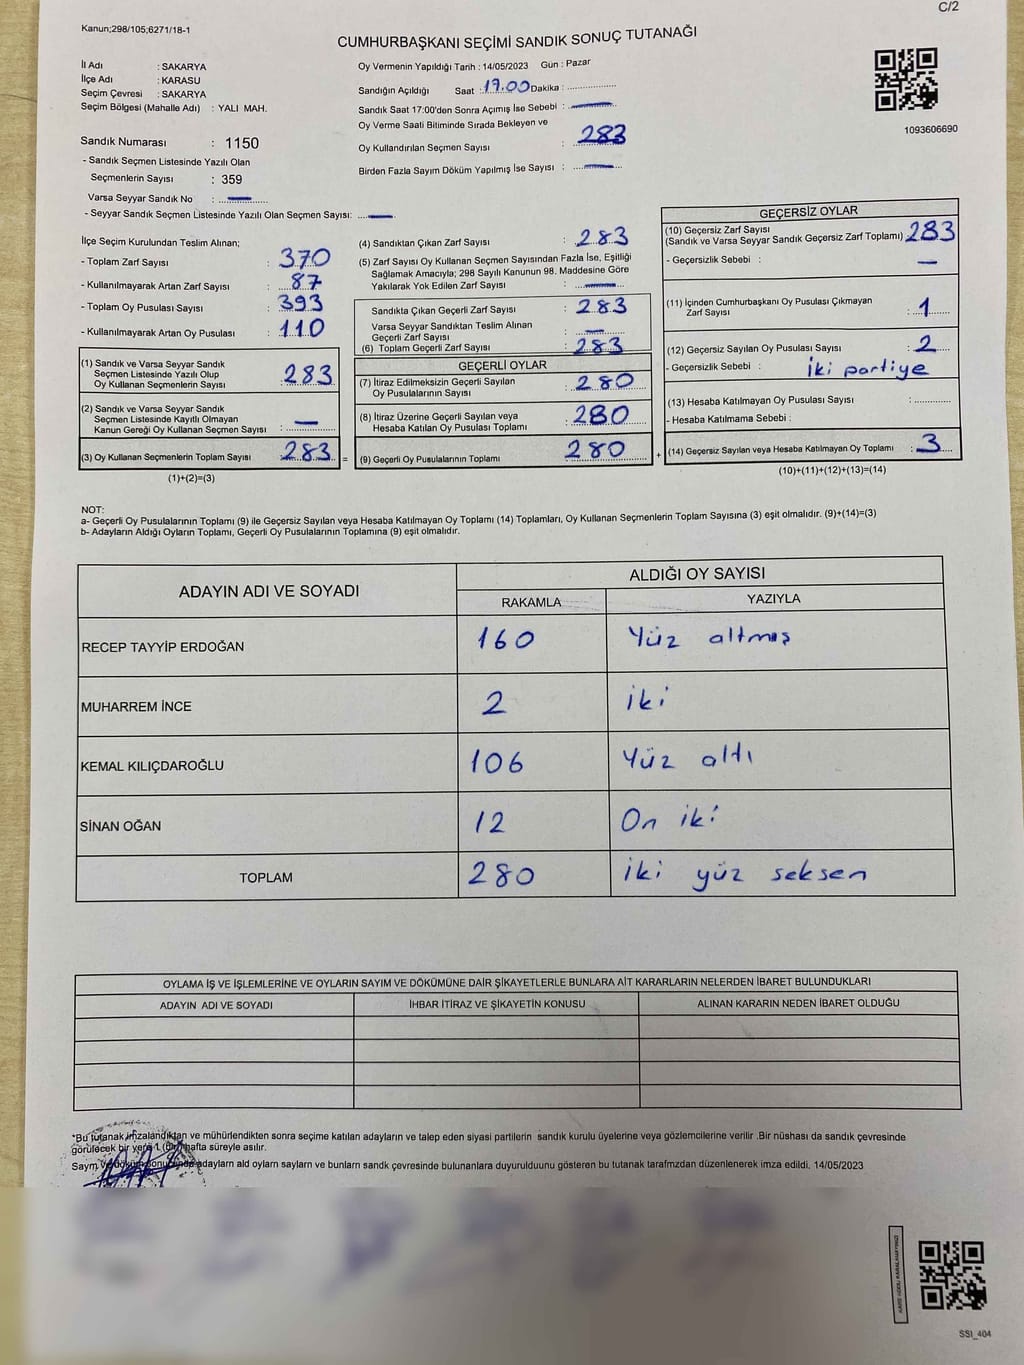 C/2
Kanun;298/105;6271/18-1
CUMHURBAŞKANI SEÇİMİ SANDIK SONUÇ TUTANAĞI
İl Adı : SAKARYA
İlçe Adı : KARASU
Seçim Çevresi : SAKARYA
Seçim Bölgesi (Mahalle Adı) : YALI MAH.
Sandık Numarası : 1150
- Sandık Seçmen Listesinde Yazılı Olan
Seçmenlerin Sayısı : 359
Varsa Seyyar Sandık No :
- Seyyar Sandık Seçmen Listesinde Yazılı Olan Seçmen Sayısı:
Oy Vermenin Yapıldığı Tarih : 14/05/2023 Gün : Pazar
Sandığın Açıldığı Saat : 17.00 Dakika :
Sandık Saat 17:00'den Sonra Açımış İse Sebebi :
Oy Verme Saati Bitiminde Sırada Bekleyen ve
Oy Kullandırılan Seçmen Sayısı : 283
Birden Fazla Sayım Döküm Yapılmış İse Sayısı :
1093606690
İlçe Seçim Kurulundan Teslim Alınan;
- Toplam Zarf Sayısı : 370
- Kullanılmayarak Artan Zarf Sayısı : 87
- Toplam Oy Pusulası Sayısı : 393
- Kullanılmayarak Artan Oy Pusulası : 110
(1) Sandık ve Varsa Seyyar Sandık
Seçmen Listesinde Yazılı Olup
Oy Kullanan Seçmenlerin Sayısı : 283
(2) Sandık ve Varsa Seyyar Sandık
Seçmen Listesinde Kayıtlı Olmayan
Kanun Gereği Oy Kullanan Seçmen Sayısı :
(3) Oy Kullanan Seçmenlerin Toplam Sayısı : 283 =
(1)+(2)=(3)
(4) Sandıktan Çıkan Zarf Sayısı : 283
(5) Zarf Sayısı Oy Kullanan Seçmen Sayısından Fazla İse, Eşitliği
Sağlamak Amacıyla; 298 Sayılı Kanunun 98. Maddesine Göre
Yakılarak Yok Edilen Zarf Sayısı :
Sandıkta Çıkan Geçerli Zarf Sayısı : 283
Varsa Seyyar Sandıktan Teslim Alınan
Geçerli Zarf Sayısı :
(6) Toplam Geçerli Zarf Sayısı : 283
GEÇERLİ OYLAR
(7) İtiraz Edilmeksizin Geçerli Sayılan
Oy Pusulasının Sayısı : 280
(8) İtiraz Üzerine Geçerli Sayılan veya
Hesaba Katılan Oy Pusulası Toplamı : 280
(9) Geçerli Oy Pusulalarının Toplamı : 280 +
GEÇERSİZ OYLAR
(10) Geçersiz Zarf Sayısı
(Sandık ve Varsa Seyyar Sandık Geçersiz Zarf Toplamı) : 283
- Geçersizlik Sebebi :
(11) İçinden Cumhurbaşkanı Oy Pusulası Çıkmayan
Zarf Sayısı : 1
(12) Geçersiz Sayılan Oy Pusulası Sayısı : 2
- Geçersizlik Sebebi : iki partiye
(13) Hesaba Katılmayan Oy Pusulası Sayısı :
- Hesaba Katılmama Sebebi :
(14) Geçersiz Sayılan veya Hesaba Katılmayan Oy Toplamı : 3
(10)+(11)+(12)+(13)=(14)
NOT:
a- Geçerli Oy Pusulalarının Toplamı (9) ile Geçersiz Sayılan veya Hesaba Katılmayan Oy Toplamı (14) Toplamları, Oy Kullanan Seçmenlerin Toplam Sayısına (3) eşit olmalıdır. (9)+(14)=(3)
b- Adayların Aldığı Oyların Toplamı, Geçerli Oy Pusulalarının Toplamına (9) eşit olmalıdır.
ADAYIN ADI VE SOYADI ALDIĞI OY SAYISI
RAKAMLA YAZIYLA
RECEP TAYYİP ERDOĞAN 160 Yüz altmış
MUHARREM İNCE 2 iki
KEMAL KILIÇDAROĞLU 106 Yüz altı
SİNAN OĞAN 12 On iki
TOPLAM 280 iki yüz seksen
OYLAMA İŞ VE İŞLEMLERİNE VE OYLARIN SAYIM VE DÖKÜMÜNE DAİR ŞİKAYETLERLE BUNLARA AİT KARARLARIN NELERDEN İBARET BULUNDUKLARI
ADAYIN ADI VE SOYADI İHBAR İTİRAZ VE ŞİKAYETİN KONUSU ALINAN KARARIN NEDEN İBARET OLDUĞU
*Bu tutanak imzalandıktan ve mühürlendikten sonra seçime katılan adayların ve talep eden siyasi partilerin sandık kurulu üyelerine veya gözlemcilerine verilir .Bir nüshası da sandık çevresinde
görülecek bir yere 1 (bir) hafta süreyle asılır.
Saym ve döküm sonucunda adaylarn ald oylarn saylarn ve bunlarn sandk çevresinde bulunanlara duyurulduunu gösteren bu tutanak tarafmzdan düzenlenerek imza edildi. 14/05/2023
SSI_404